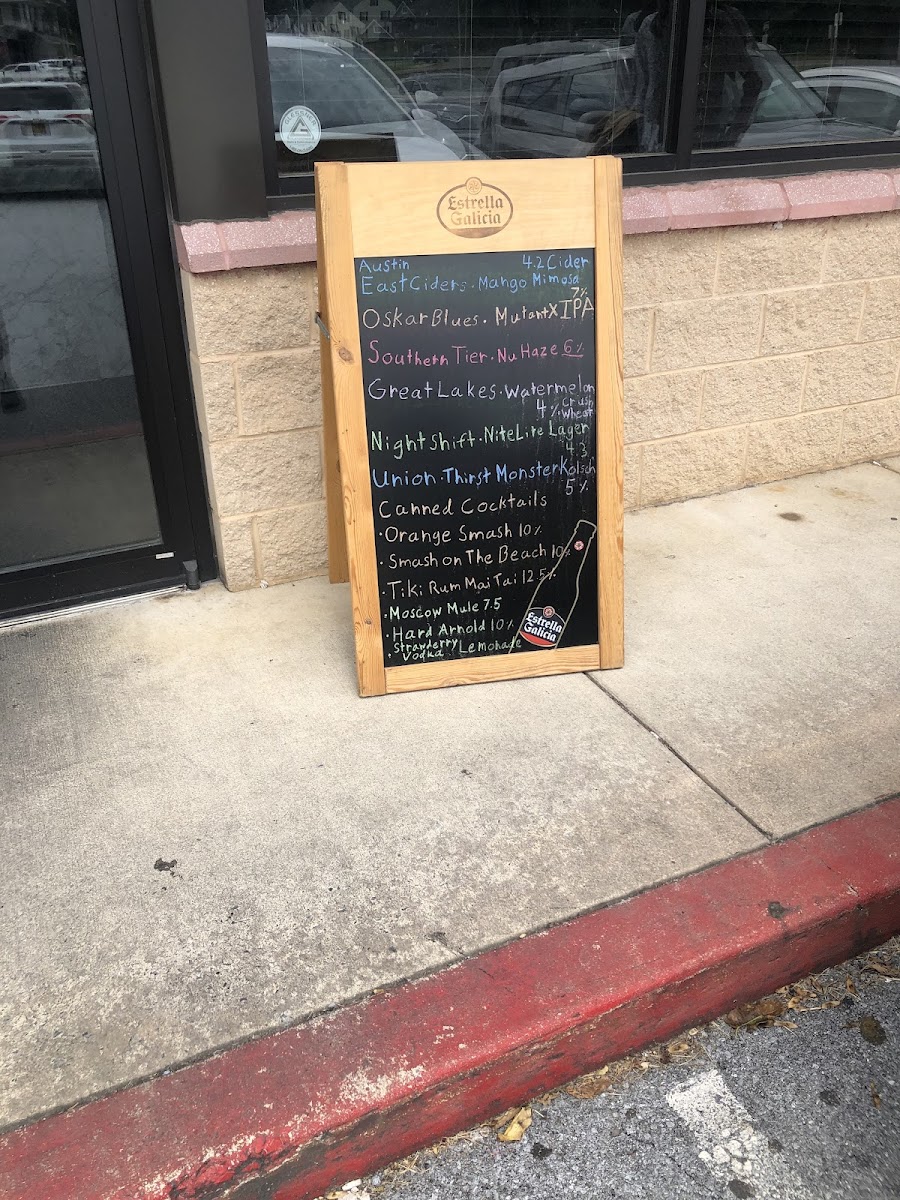 Estrella
Galicia
Austin 4.2 Cider
East Ciders. Mango Mimosa
7%
Oskar Blues. Mutant X IPA
Southern Tier. Nu Haze 6%
Great Lakes. Watermelon
4% Crush
Wheat
Night Shift. Nite Lite Lager
4.3
Union. Thirst Monster Kolsch
5%
Canned Cocktails
· Orange Smash 10%
· Smash on The Beach 10%
· Tiki Rum Mai Tai 12.5%
· Moscow Mule 7.5
· Hard Arnold 10%
Strawberry Lemonade
· Vodka
Estrella
Galicia